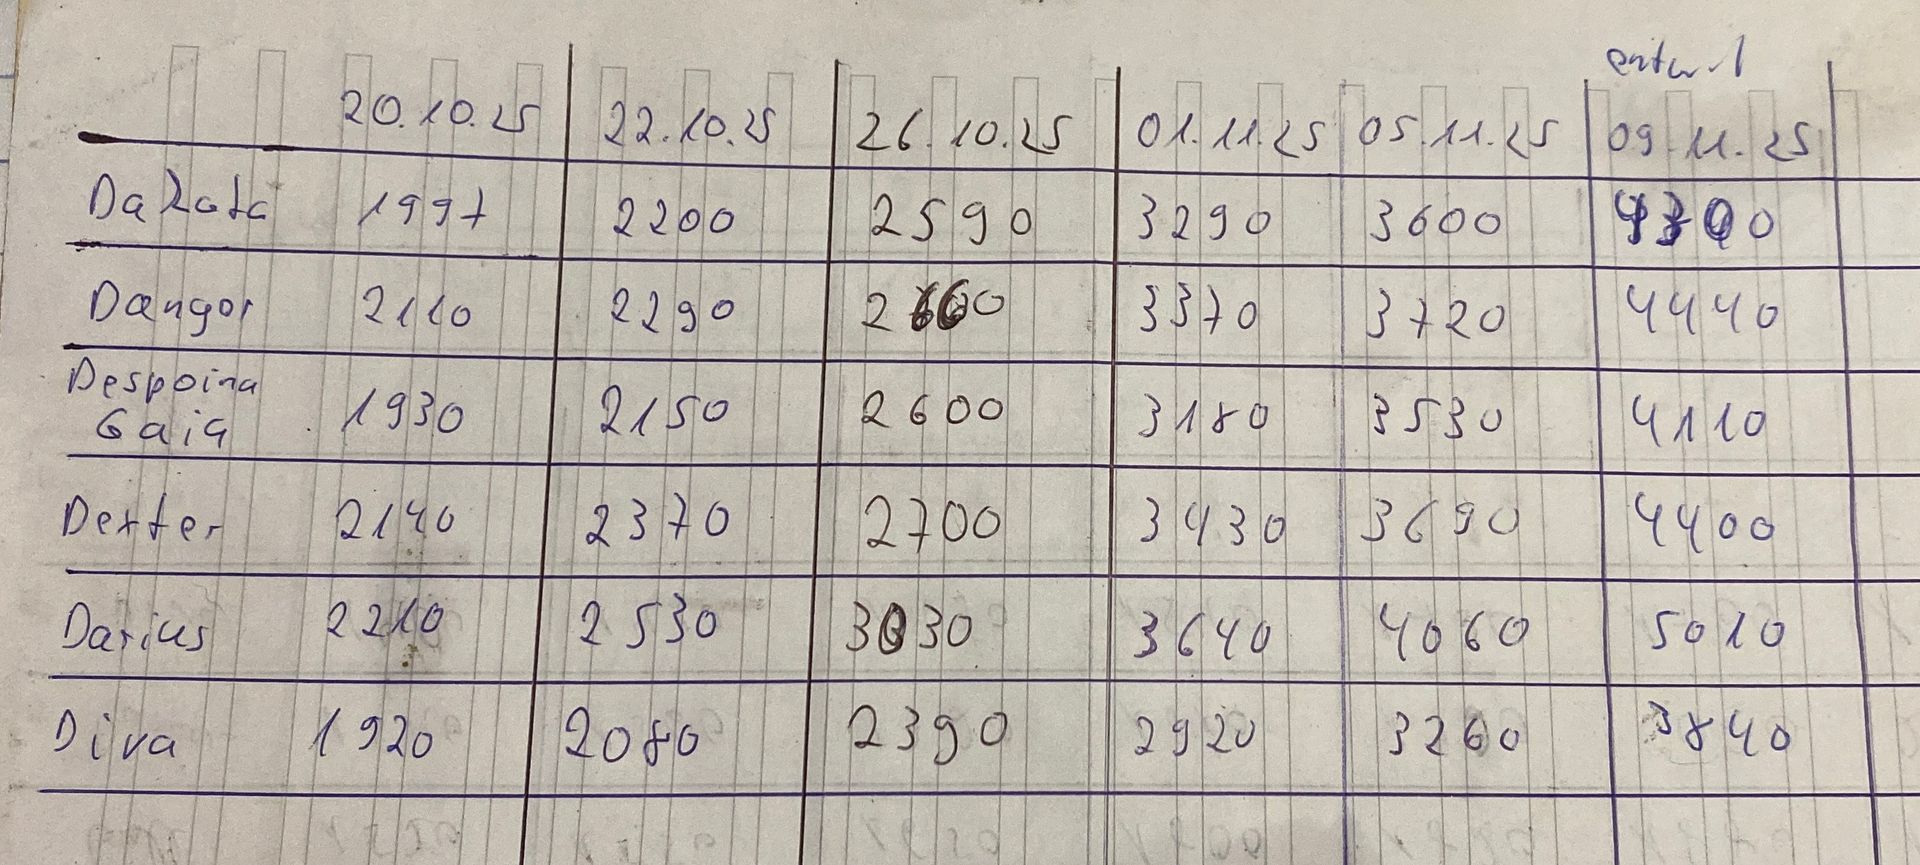 entw.1
20.10.25 22.10.25 26.10.25 01.11.25 05.11.25 09.11.25
Dakota 1997 2200 2590 3290 3600
Dangor 2110 2290 2660 3370 3720 4440
Despoina
Gaia 1930 2150 2600 3180 3530 4110
Dexter 2140 2370 2700 3430 3690 4400
Darius 2210 2530 3030 3640 4060 5010
Diva 1920 2080 2390 2920 3260 3840